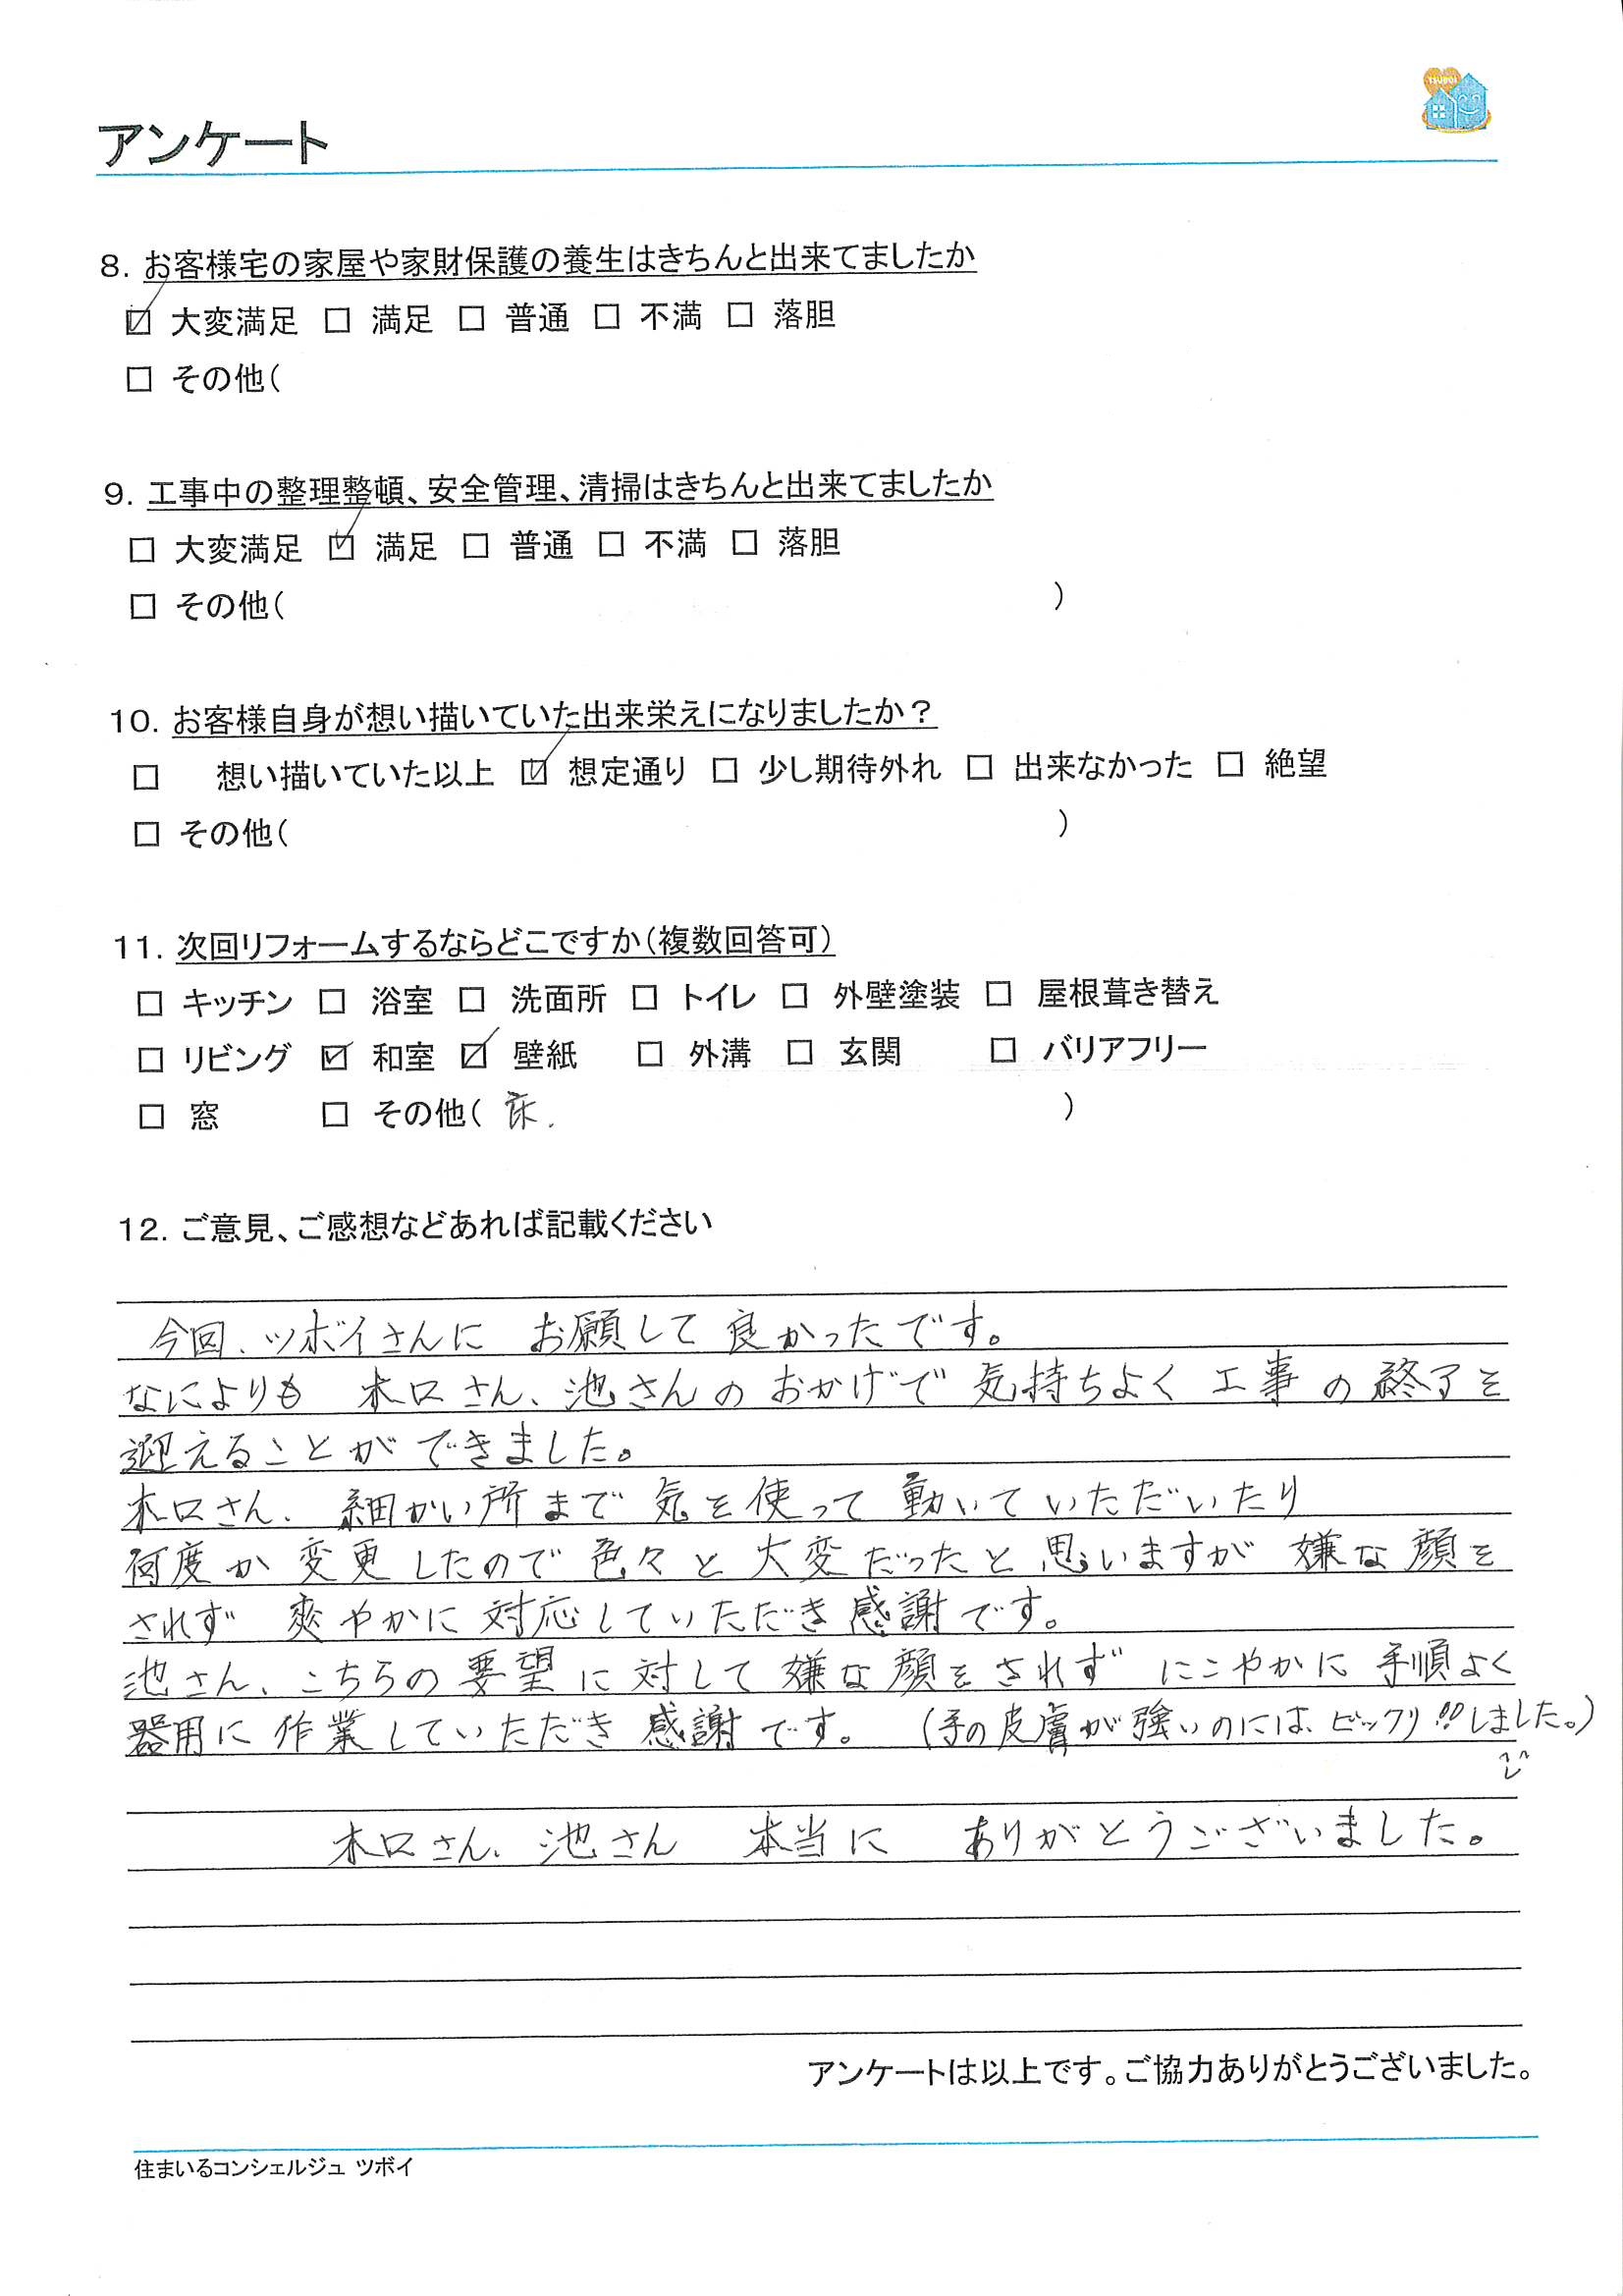 TSUBOI
アンケート
8. お客様宅の家屋や家財保護の養生はきちんと出来てましたか
☑ 大変満足 □ 満足 □ 普通 □ 不満 □ 落胆
□ その他(
9. 工事中の整理整頓、安全管理、清掃はきちんと出来てましたか
□ 大変満足 ☑ 満足 □ 普通 □ 不満 □ 落胆
□ その他( )
10. お客様自身が想い描いていた出来栄えになりましたか？
□ 想い描いていた以上 ☑ 想定通り □ 少し期待外れ □ 出来なかった □ 絶望
□ その他( )
11. 次回リフォームするならどこですか(複数回答可)
□ キッチン □ 浴室 □ 洗面所 □ トイレ □ 外壁塗装 □ 屋根葺き替え
□ リビング ☑ 和室 ☑ 壁紙 □ 外溝 □ 玄関 □ バリアフリー
□ 窓 □ その他( 床. )
12. ご意見、ご感想などあれば記載ください
今回、ツボイさんに お願して 良かったです。
なによりも 木口さん、池さんのおかげで 気持ちよく 工事の終了を
迎えることができました。
木口さん、細かい所まで気を使って動いていただいたり
何度か変更したので色々と大変だったと思いますが 嫌な顔を
されず 爽やかに対応していただき感謝です。
池さん、こちらの要望に対して嫌な顔をされず にこやかに手順よく
器用に作業していただき感謝です。(手の皮膚が強いのには、ビックリ!!しました。)
木口さん、池さん 本当に ありがとうございました。
アンケートは以上です。ご協力ありがとうございました。
住まいるコンシェルジュ ツボイ